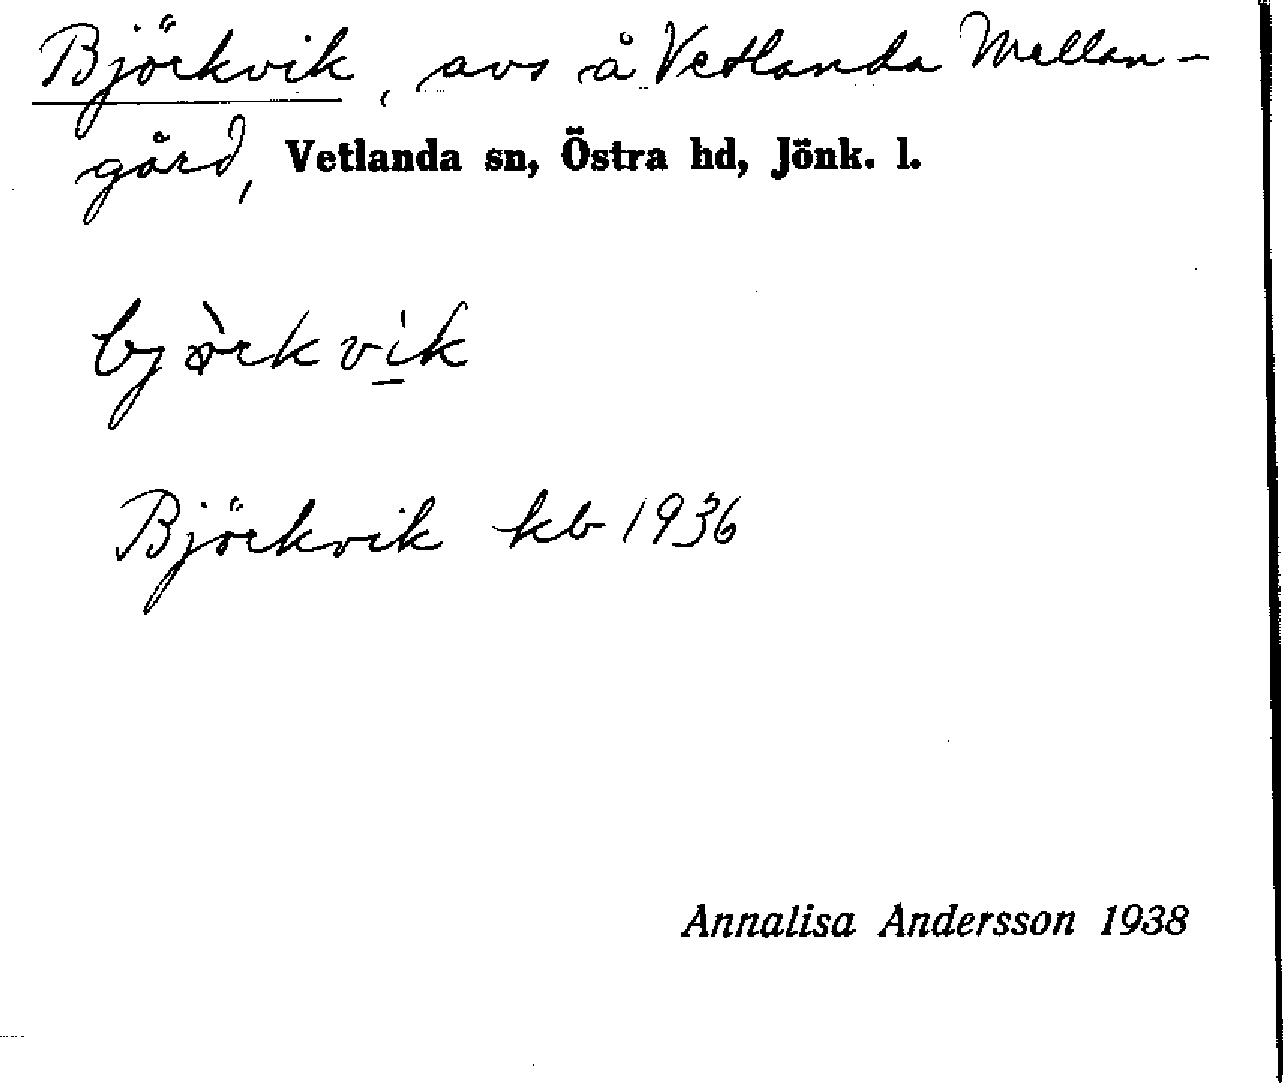 Björkvik, avs å Vetlanda Mellan-
gård, Vetlanda sn, Östra hd, Jönk. l.
bjòrkvi̠k
Björkvik kb 1936
Annalisa Andersson 1938